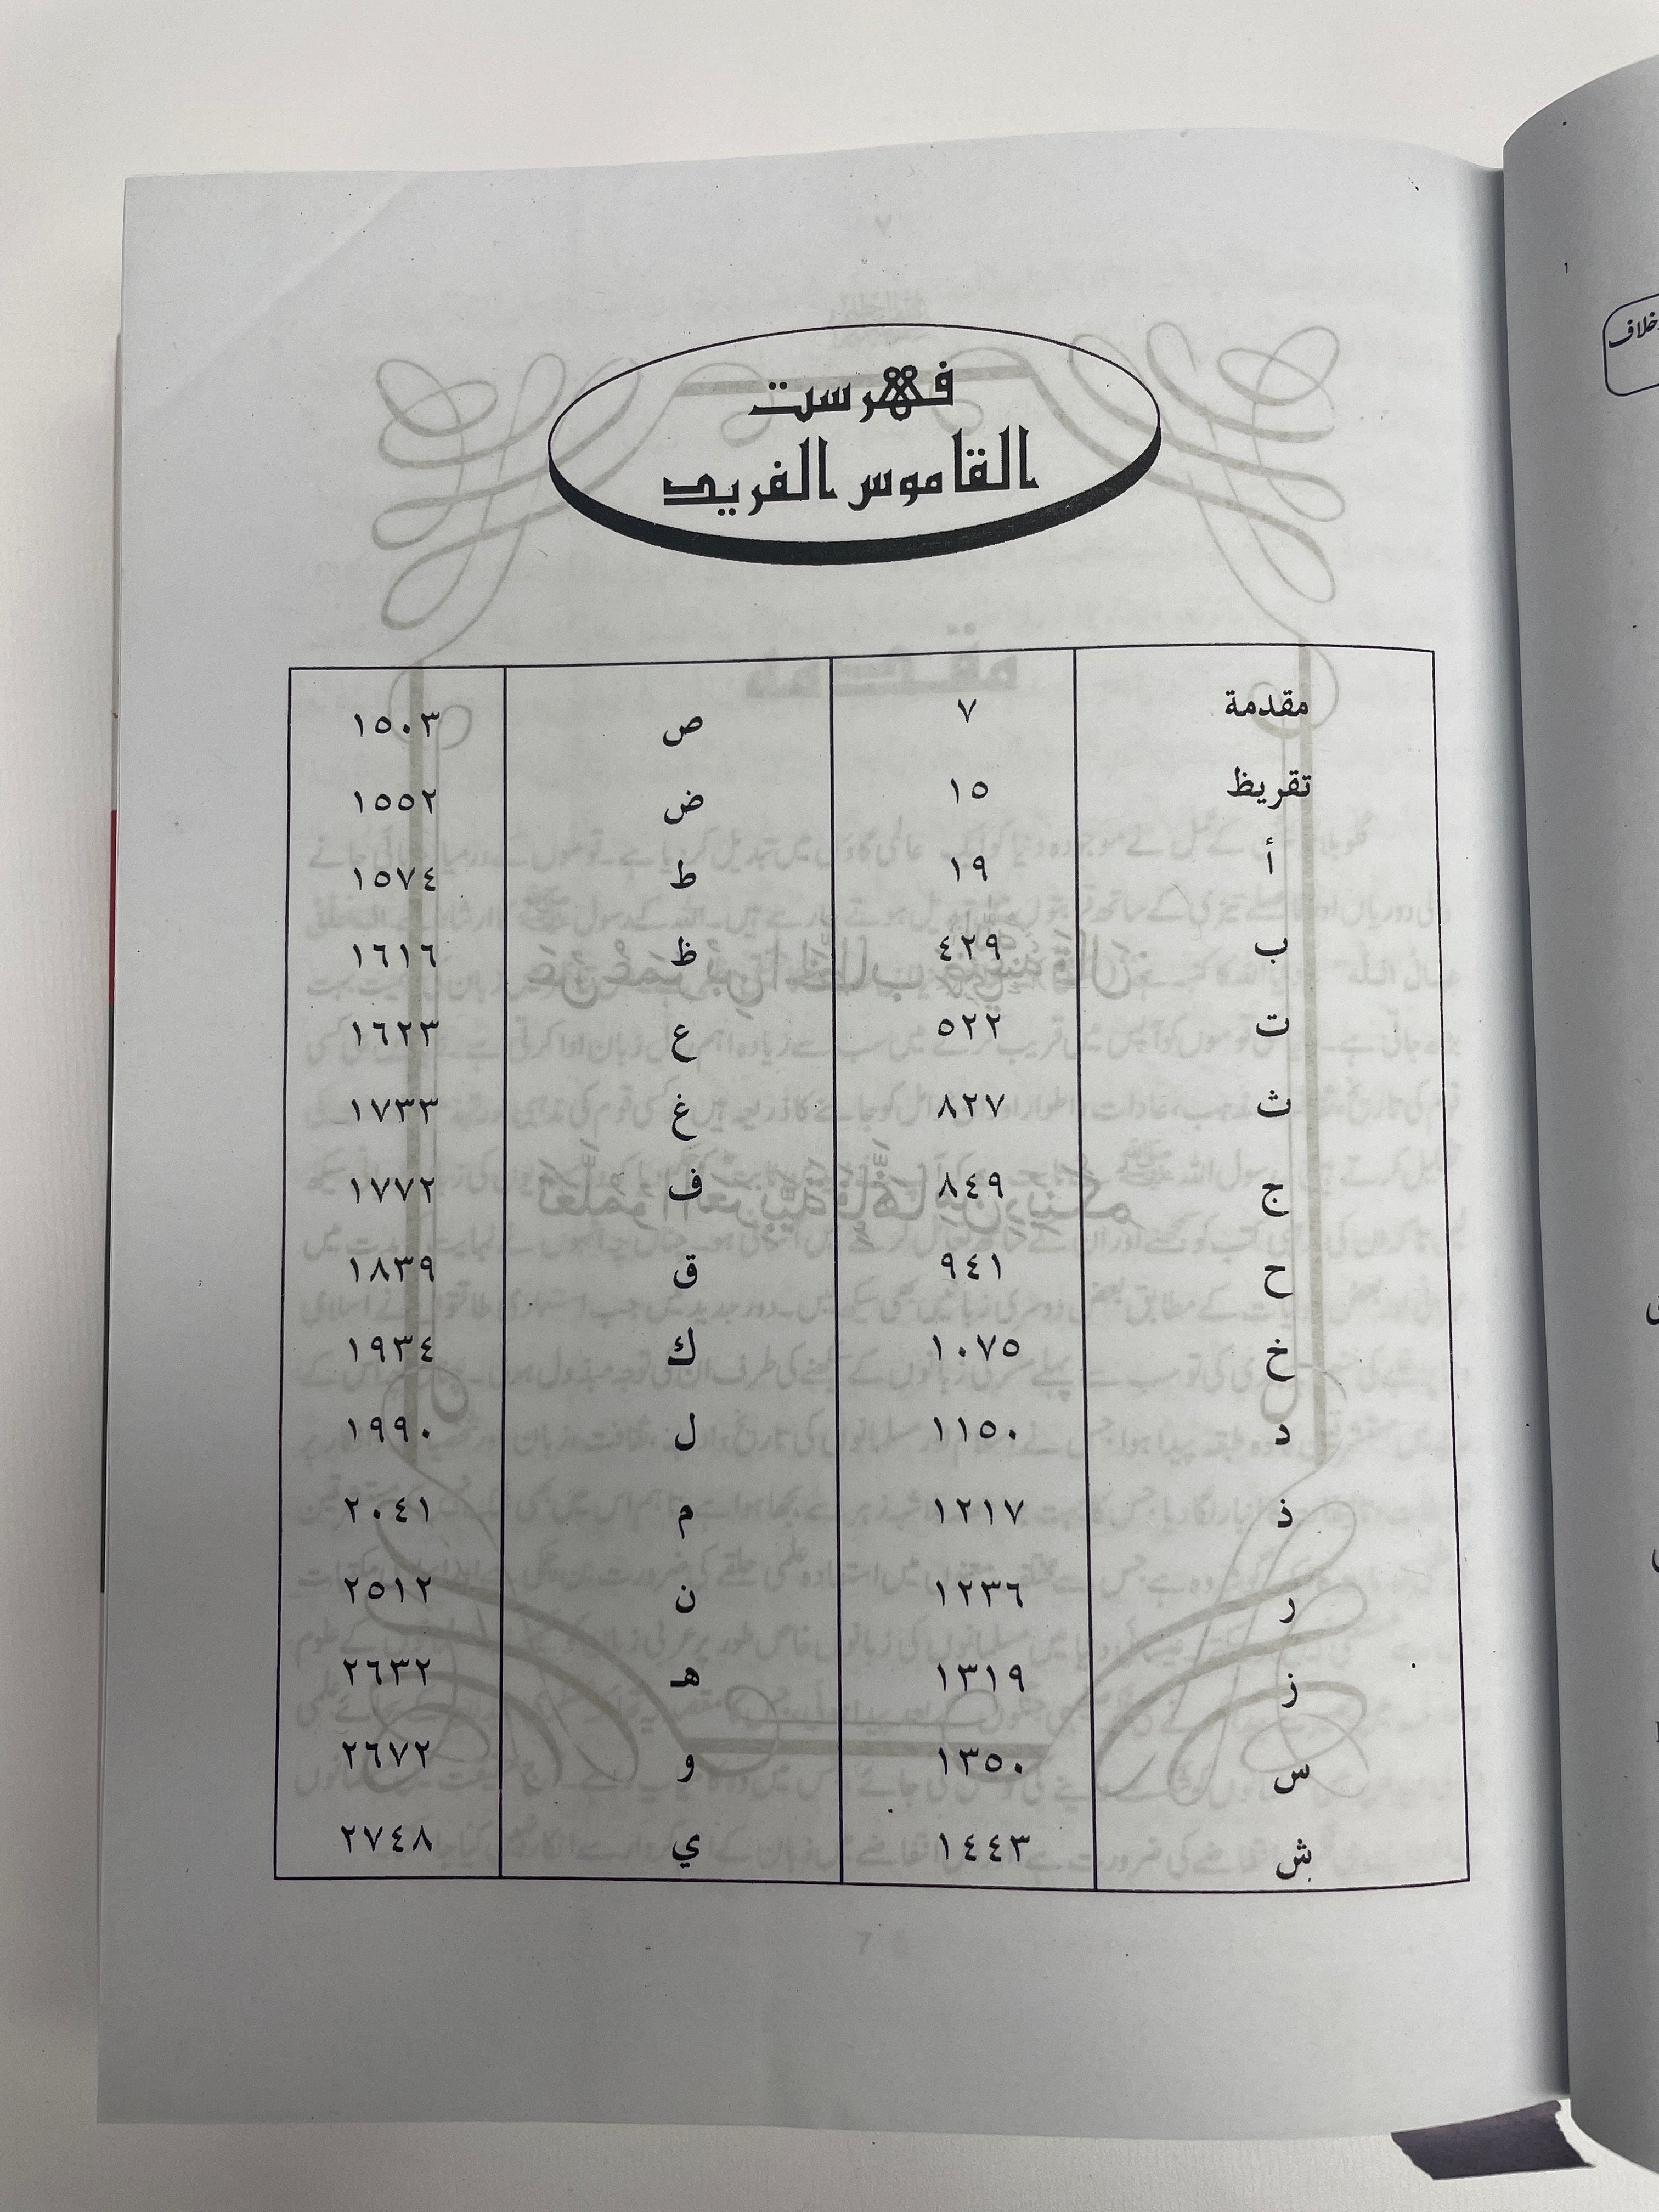 فهرست
القاموس الفريد
مقدمة ٧ ص ١٥٠٣
تقريظ ١٥ ض ١٥٥٢
أ ١٩ ط ١٥٧٤
ب ٤٢٩ ظ ١٦١٦
ت ٥٢٢ ع ١٦٢٣
ث ٨٢٧ غ ١٧٣٣
ج ٨٤٩ ف ١٧٧٢
ح ٩٤١ ق ١٨٣٩
خ ١٠٧٥ ك ١٩٣٤
د ١١٥٠ ل ١٩٩٠
ذ ١٢١٧ م ٢٠٤١
ر ١٢٣٦ ن ٢٥١٢
ز ١٣١٩ هـ ٢٦٣٢
س ١٣٥٠ و ٢٦٧٢
ش ١٤٤٣ ي ٢٧٤٨